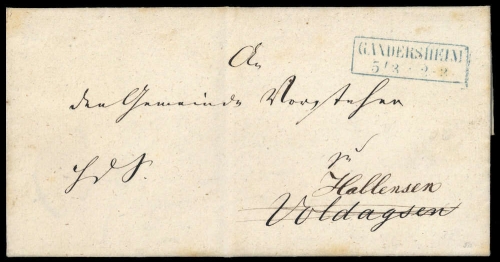 GANDERSHEIM
5/3
An
den Gemeinde Vorsteher
zu
Hallensen
Voldagsen